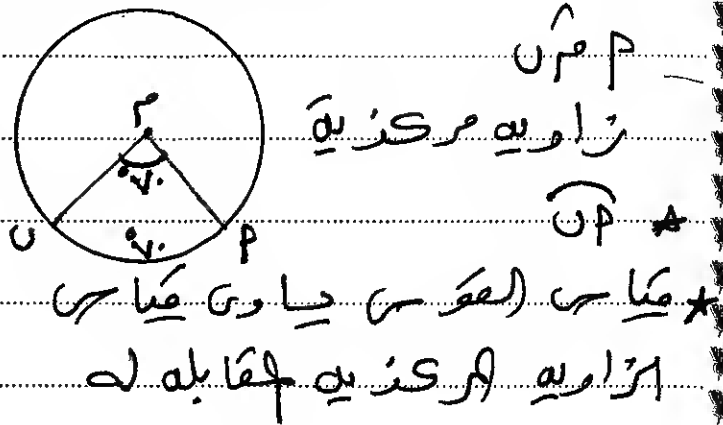 م
٧٠°
٧٠°
ب
أ
أ م ب
زاويه مركزية
أب
* قياس القوس يساوى قياس
الزاويه المركزيه المقابله له